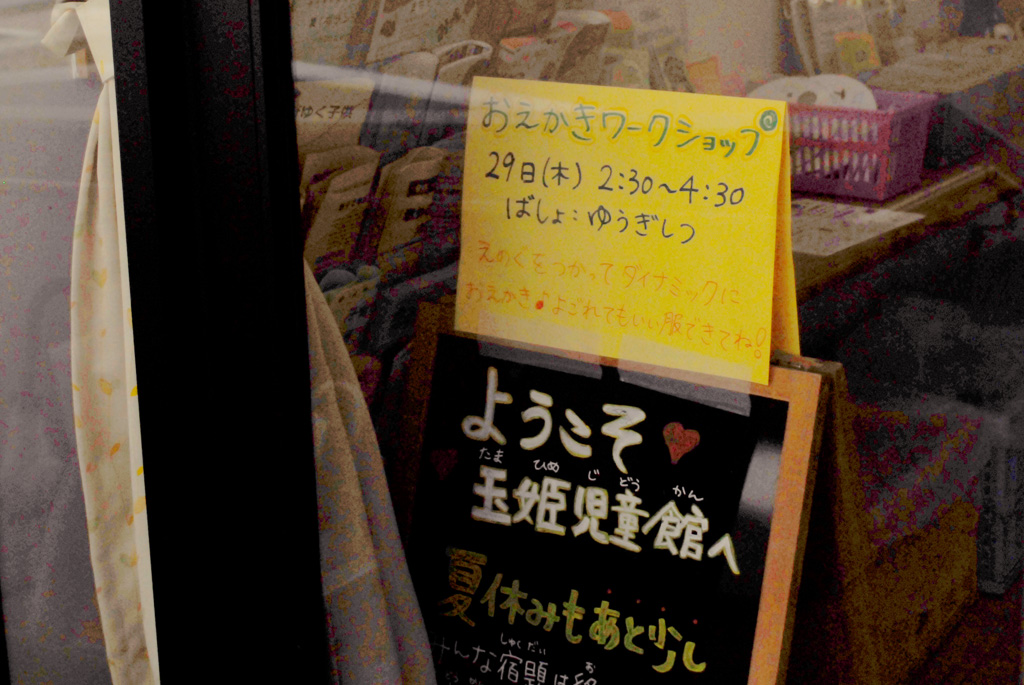 ゆく子供
おえかきワークショップ
29日(木) 2:30〜4:30
ばしょ：ゆうぎしつ
えのぐをつかってダイナミックに
おえかき♪よごれてもいい服できてね!
ようこそ
たま ひめ じ どう かん
玉姫児童館へ
夏休みもあと少し
しゅくだい お
みんな宿題は終